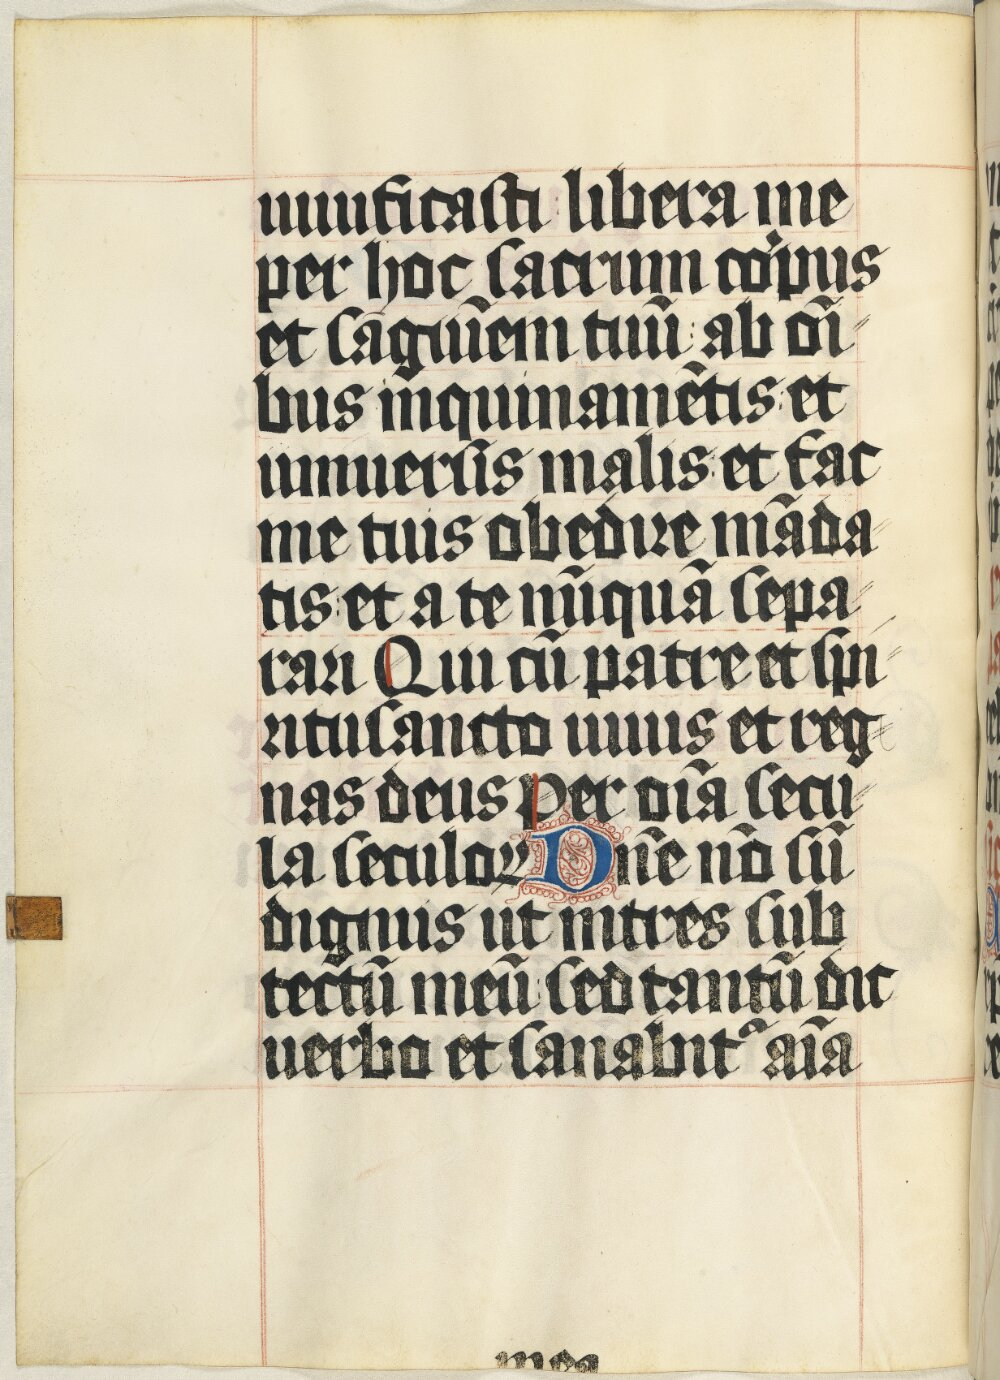 uiuificasti libera me
per hoc sacrum corpus
et sāguīem tuū: ab oī
bus inquinamētis et
uniuersis malis: et fac
me tuis obedire māda
tis: et a te nūquā sepa
rari Qui cū patre et spi
ritusancto uiuis et reg
nas deus Per oīa secu
la seculoꝝ Dn̄e nō sū
dignus ut intres sub
tectū meū: sed tantū dic
uerbo et sanabit᷑ aīa
mea